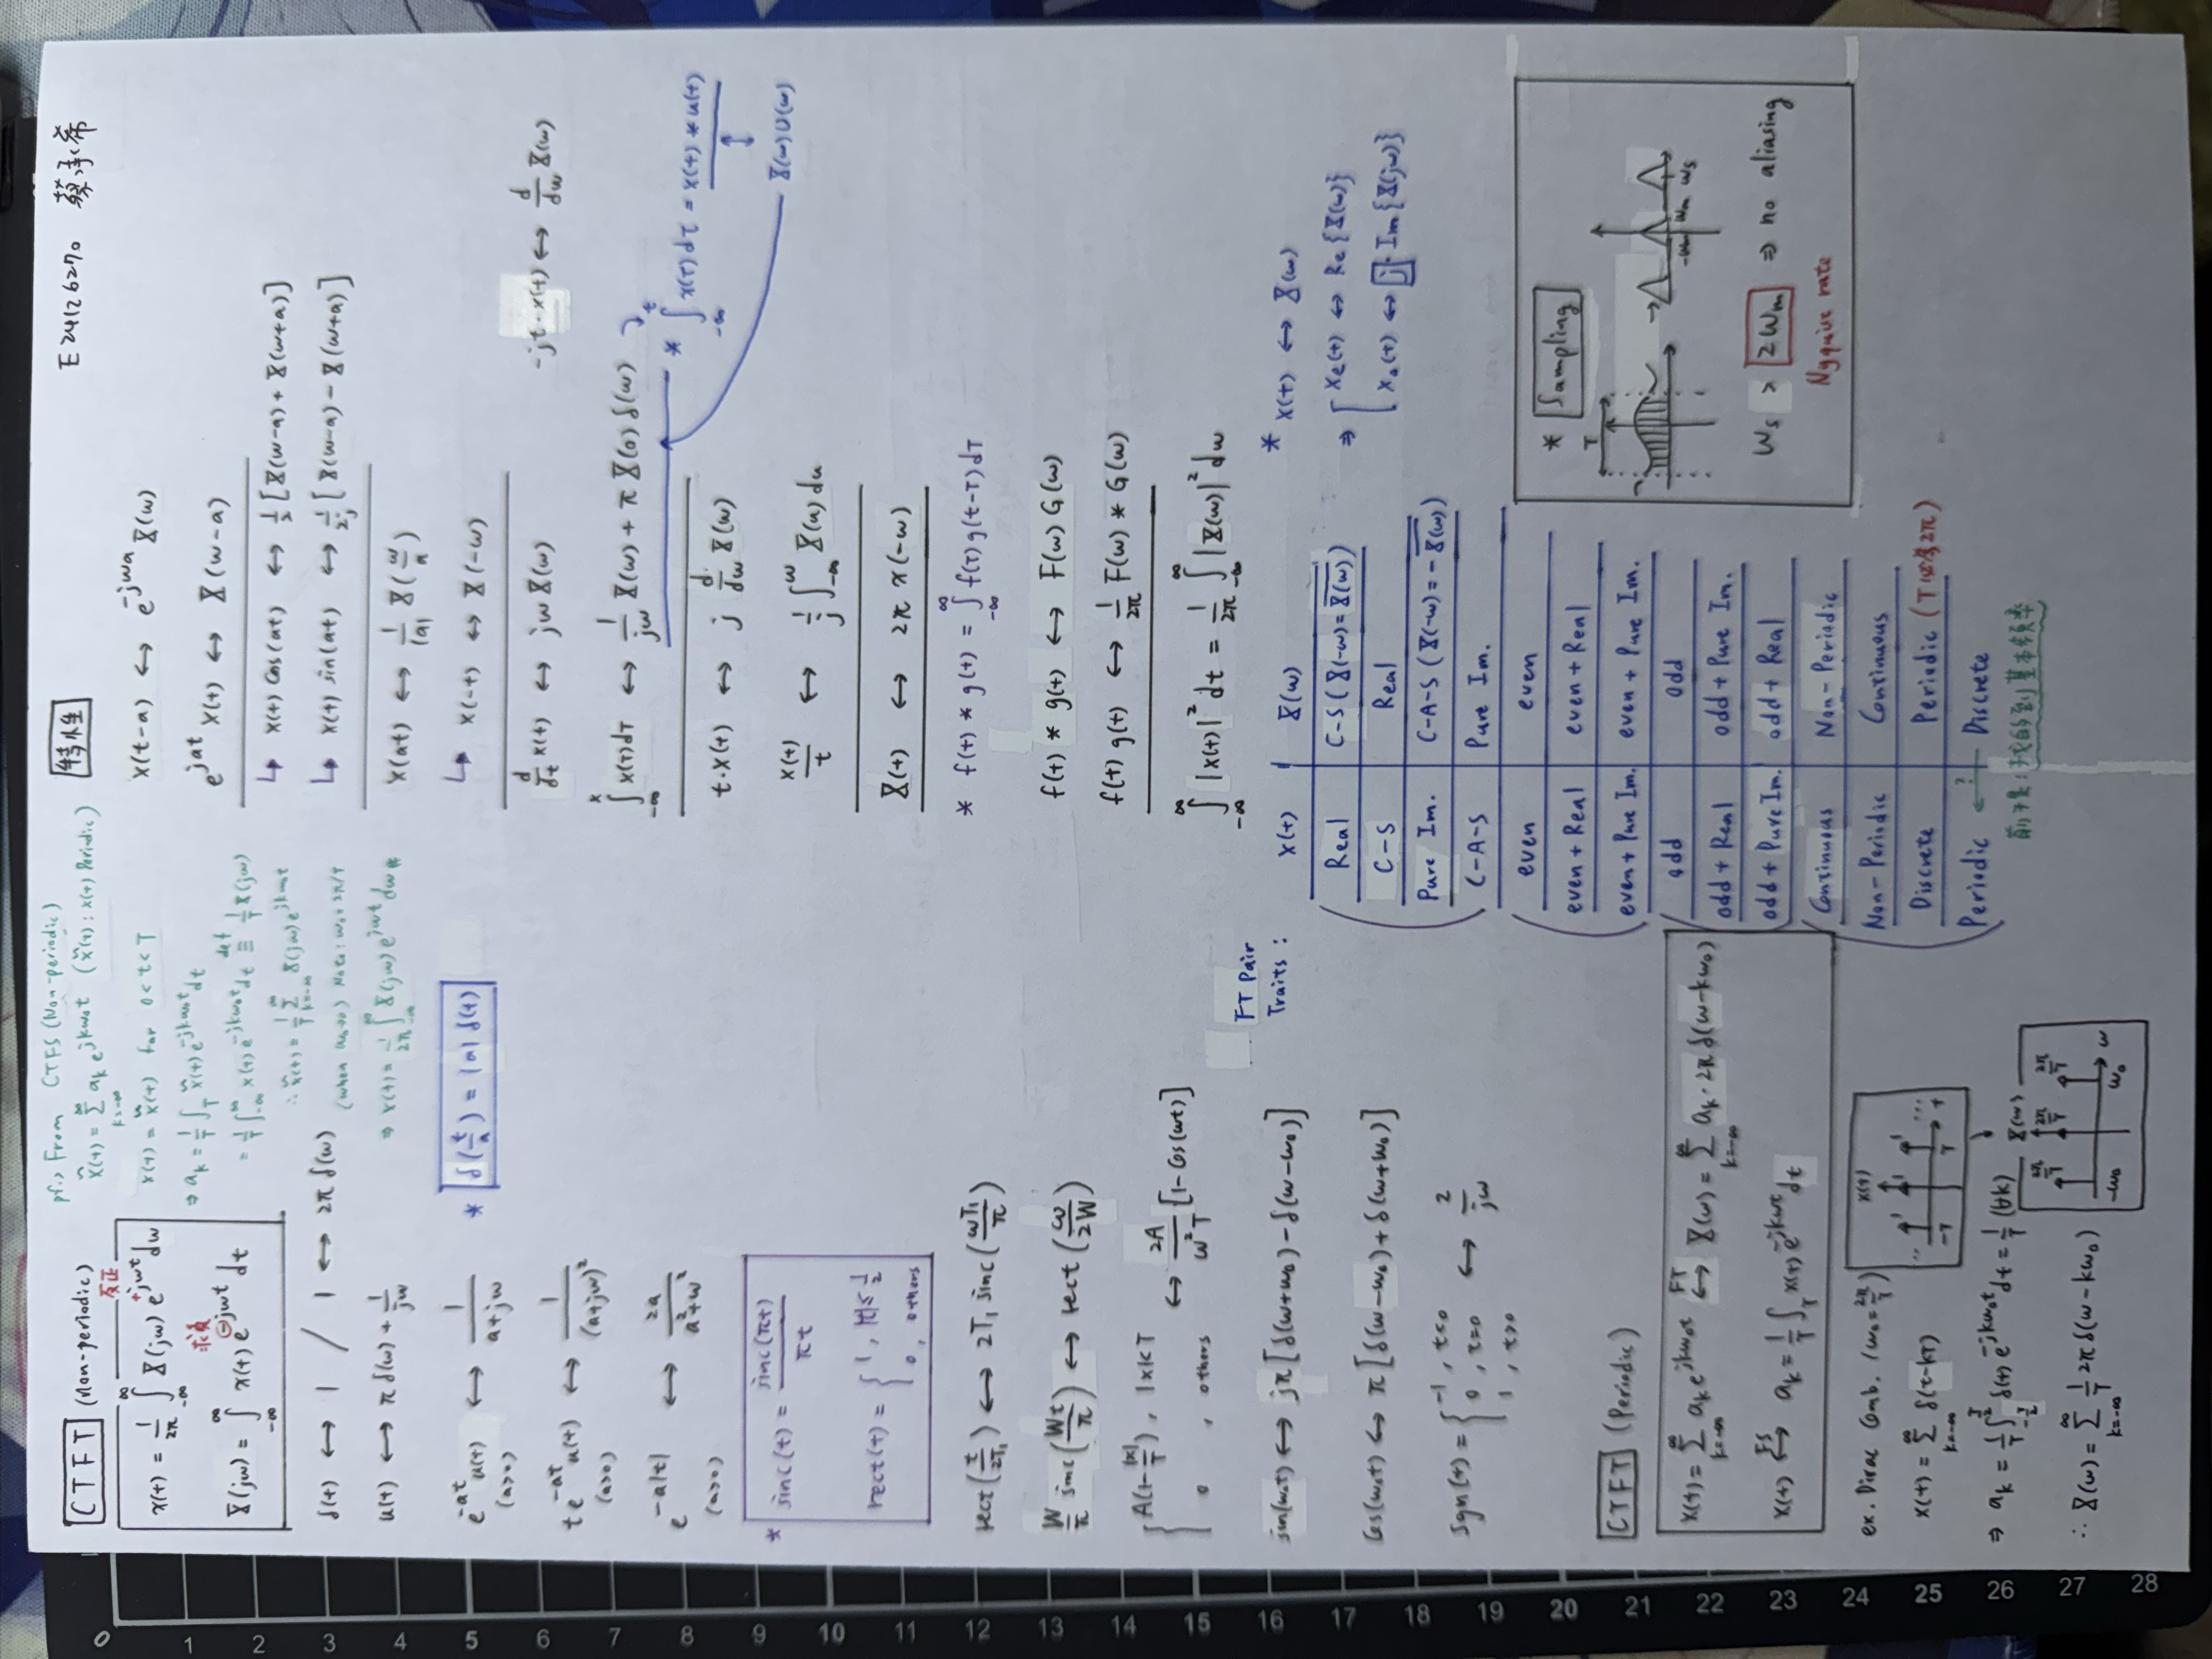 E24126270 蔡承希
CTFT (Non-periodic)
反正
x(t) = 1/2π ∫_{-∞}^{∞} X(jω) e^{+jωt} dω
求負
X(jω) = ∫_{-∞}^{∞} x(t) e^{⊖jωt} dt
pf., From CTFS (Non-periodic)
x̃(t) = Σ_{k=-∞}^{∞} a_k e^{jkω₀t} (x̃(t): x(t) Periodic)
x(t) = x̃(t) for 0<t<T
⇒ a_k = 1/T ∫_T x̃(t) e^{-jkω₀t} dt
= 1/T ∫_{-∞}^{∞} x(t) e^{-jkω₀t} dt ≡^{def} 1/T X(jω)
∴ x̃(t) = 1/T Σ_{k=-∞}^{∞} X(jω) e^{jkω₀t}
(when ω₀→0) Note: ω₀ = 2π/T
⇒ x(t) = 1/2π ∫_{-∞}^{∞} X(jω) e^{jωt} dω
δ(t) ↔ 1 / 1 ↔ 2π δ(ω)
u(t) ↔ π δ(ω) + 1/jω
e^{-at} u(t) ↔ 1/(a+jω)
(a>0)
* δ(t/a) = |a| δ(t)
t e^{-at} u(t) ↔ 1/(a+jω)²
(a>0)
e^{-a|t|} ↔ 2a/(a²+ω²)
(a>0)
* sinc(t) = sinc(πt)/πt
rect(t) = { 1, |t| ≤ 1/2
0, others
rect(t/2T₁) ↔ 2T₁ sinc(ωT₁/π)
W/π sinc(Wt/π) ↔ rect(ω/2W)
{ A(1-|x|/T), |x|<T ↔ 2A/ω²T [1-Cos(ωt)]
0, others
sin(ω₀t) ↔ jπ[δ(ω+ω₀) - δ(ω-ω₀)]
Cos(ω₀t) ↔ π[δ(ω-ω₀) + δ(ω+ω₀)]
Sgn(t) = { -1, t<0 ↔ 2/jω
0, t=0
1, t>0
CTFT (Periodic)
x(t) = Σ_{k=-∞}^{∞} a_k e^{jkω₀t} ↔^{FT} X(ω) = Σ_{k=-∞}^{∞} a_k · 2π δ(ω-kω₀)
x(t) ↔^{FS} a_k = 1/T ∫_T x(t) e^{-jkω₀t} dt
ex. Dirac Comb. (ω₀ = 2π/T)
x(t) = Σ_{k=-∞}^{∞} δ(t-kT)
⇒ a_k = 1/T ∫_{-T/2}^{T/2} δ(t) e^{-jkω₀t} dt = 1/T (∀k)
∴ X(ω) = Σ_{k=-∞}^{∞} 1/T 2π δ(ω-kω₀)
x(t)
1 1 1
-T T t
X(ω)
2π/T 2π/T 2π/T
-ω₀ ω₀ ω
特性
x(t-a) ↔ e^{-jωa} X(ω)
e^{jat} x(t) ↔ X(ω-a)
↳ x(t) Cos(at) ↔ 1/2 [X(ω-a) + X(ω+a)]
↳ x(t) sin(at) ↔ 1/2j [X(ω-a) - X(ω+a)]
x(at) ↔ 1/|a| X(ω/a)
↳ x(-t) ↔ X(-ω)
d/dt x(t) ↔ jω X(ω)
-jt·x(t) ↔ d/dω X(ω)
∫_{-∞}^{x} x(τ)dτ ↔ 1/jω X(ω) + π X(0) δ(ω)
* ∫_{-∞}^{t} x(τ) dτ = x(t) * u(t)
↕
X(ω)U(ω)
t·x(t) ↔ j d/dω X(ω)
x(t)/t ↔ 1/j ∫_{-∞}^{ω} X(u) du
X(t) ↔ 2π x(-ω)
* f(t) * g(t) = ∫_{-∞}^{∞} f(τ) g(t-τ) dτ
f(t) * g(t) ↔ F(ω) G(ω)
f(t) g(t) ↔ 1/2π F(ω) * G(ω)
∫_{-∞}^{∞} |x(t)|² dt = 1/2π ∫_{-∞}^{∞} |X(ω)|² dω
FT Pair
Traits :
x(t) X(ω)
Real C-S (X(-ω) = \overline{X(ω)})
C-S Real
Pure Im. C-A-S (X(-ω) = -\overline{X(ω)})
C-A-S Pure Im.
even even
even + Real even + Real
even + Pure Im. even + Pure Im.
odd odd
odd + Real odd + Pure Im.
odd + Pure Im. odd + Real
Continuous Non-Periodic
Non-Periodic Continuous
Discrete Periodic (T必為2π)
Periodic ←? Discrete
前提:找的到基本頻率
* x(t) ↔ X(ω)
⇒ [ x_e(t) ↔ Re{X(ω)}
[ x_o(t) ↔ j·Im{X(jω)}
* Sampling
T
-ωm ωm ωs
ωs > 2ωm ⇒ no aliasing
Nyquire rate
0
1
2
3
4
5
6
7
8
9
10
11
12
13
14
15
16
17
18
19
20
21
22
23
24
25
26
27
28